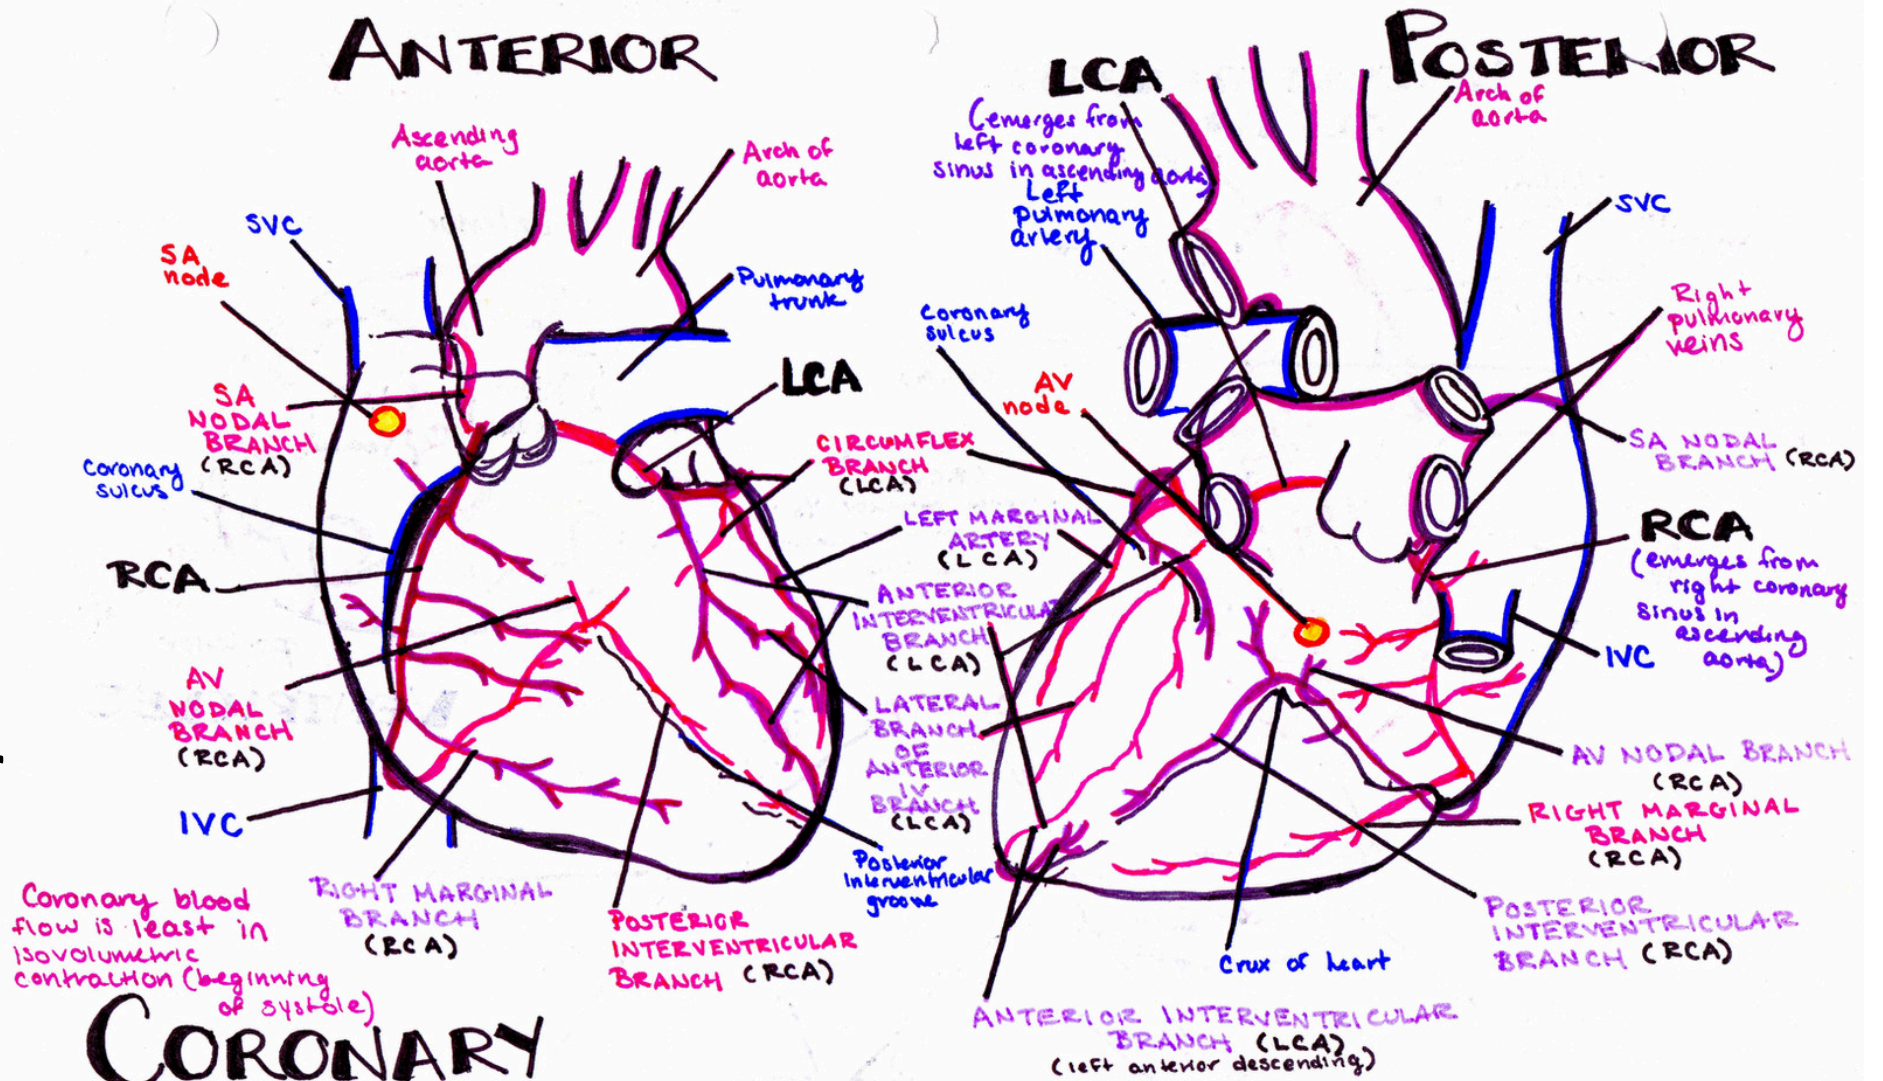 ANTERIOR
Ascending
aorta
Arch of
aorta
SVC
SA
node
Pulmonary
trunk
LCA
SA
NODAL
BRANCH
(RCA)
Coronary
sulcus
CIRCUMFLEX
BRANCH
(LCA)
LEFT MARGINAL
ARTERY
(LCA)
RCA
ANTERIOR
INTERVENTRICULAR
BRANCH
(LCA)
AV
NODAL
BRANCH
(RCA)
LATERAL
BRANCH
OF
ANTERIOR
IV
BRANCH
(LCA)
IVC
Posterior
Interventricular
groove
RIGHT MARGINAL
BRANCH
(RCA)
POSTERIOR
INTERVENTRICULAR
BRANCH (RCA)
Coronary blood
flow is least in
isovolumetric
contraction (beginning
of systole)
CORONARY
POSTERIOR
LCA
(emerges from
left coronary
sinus in ascending aorta)
Left
pulmonary
artery
Arch of
aorta
SVC
Coronary
sulcus
Right
pulmonary
veins
AV
node
SA NODAL
BRANCH (RCA)
RCA
(emerges from
right coronary
sinus in
ascending
aorta)
IVC
AV NODAL BRANCH
(RCA)
RIGHT MARGINAL
BRANCH
(RCA)
POSTERIOR
INTERVENTRICULAR
BRANCH (RCA)
Crux of heart
ANTERIOR INTERVENTRICULAR
BRANCH (LCA)
(left anterior descending)